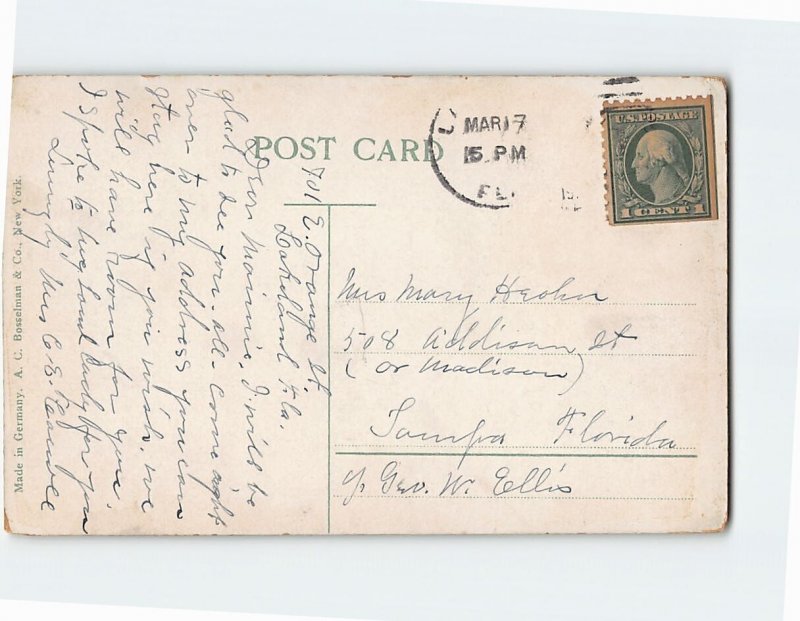 POST CARD
MAR 17
5 PM
FL
U.S. POSTAGE
1 CENT 1
701 E. Orange St
Lakeland Fla.
Dear Mannie. I will be
glad to see you-all- come right
over to my address you can
stay here if you wish. we
will have room for you.
I spoke to my land lady for you
Lovingly Mrs C. E.
Mrs Mary
508 Addison St
(or Madison)
Tampa Florida
Geo. W. Ellis
Made in Germany. A. C. Bosselman & Co., New York.